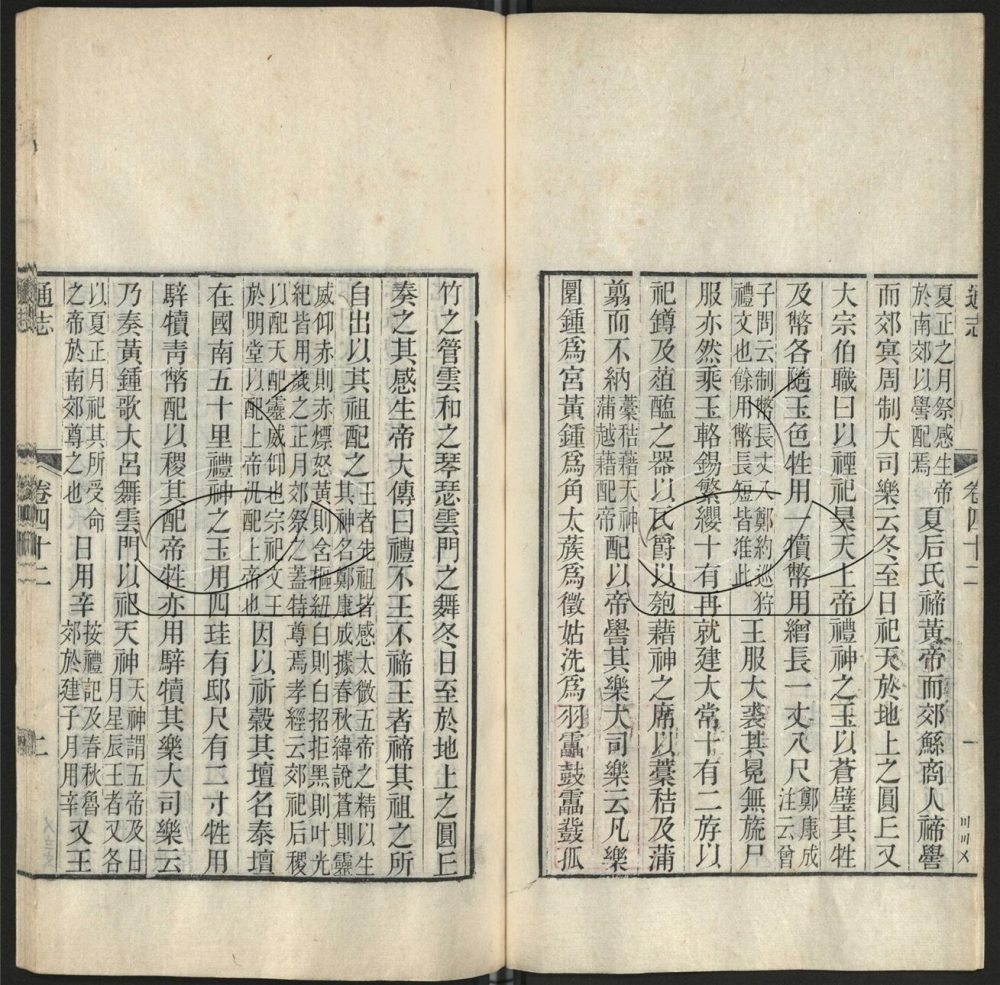 通志 卷四十二 一
夏正之月祭感生帝
於南郊以嚳配焉
夏后氏禘黃帝而郊鯀商人禘嚳
而郊冥周制大司樂云冬至日祀天於地上之圓丘又
大宗伯職曰以禋祀昊天上帝禮神之玉以蒼璧其牲
及幣各隨玉色牲用一犢幣用繒長一丈八尺
鄭康成
注云曾
子問云制幣長丈八鄭約巡狩
禮文也餘用幣長短皆准此
王服大裘其冕無旒尸
服亦然乘玉輅錫繁纓十有再就建大常十有二斿以
祀鐏及菹醢之器以瓦爵以匏藉神之席以藁秸及蒲
翦而不納
藁秸藉天神
蒲越藉配帝
配以帝嚳其樂大司樂云凡樂
圜鍾爲宮黃鍾爲角太蔟爲徵姑洗爲羽靁鼓靁鼗孤
竹之管雲和之琴瑟雲門之舞冬日至於地上之圓丘
奏之其感生帝大傳曰禮不王不禘王者禘其祖之所
自出以其祖配之
王者先祖皆感太微五帝之精以生
其神名鄭康成據春秋緯說蒼則靈
威仰赤則赤熛怒黃則含樞紐白則白招拒黑則叶光
紀皆用歲之正月郊祭之蓋特尊焉孝經云郊祀后稷
以配天配靈威仰也宗祀文王
於明堂以配上帝汎配上帝也
因以祈穀其壇名泰壇
在國南五十里禮神之玉用四珪有邸尺有二寸牲用
騂犢靑幣配以稷其配帝牲亦用騂犢其樂大司樂云
乃奏黃鍾歌大呂舞雲門以祀天神
天神謂五帝及日
月星辰王者又各
以夏正月祀其所受命
之帝於南郊尊之也
日用辛
按禮記及春秋魯
郊於建子月用辛
又王
通志 卷四十二 二